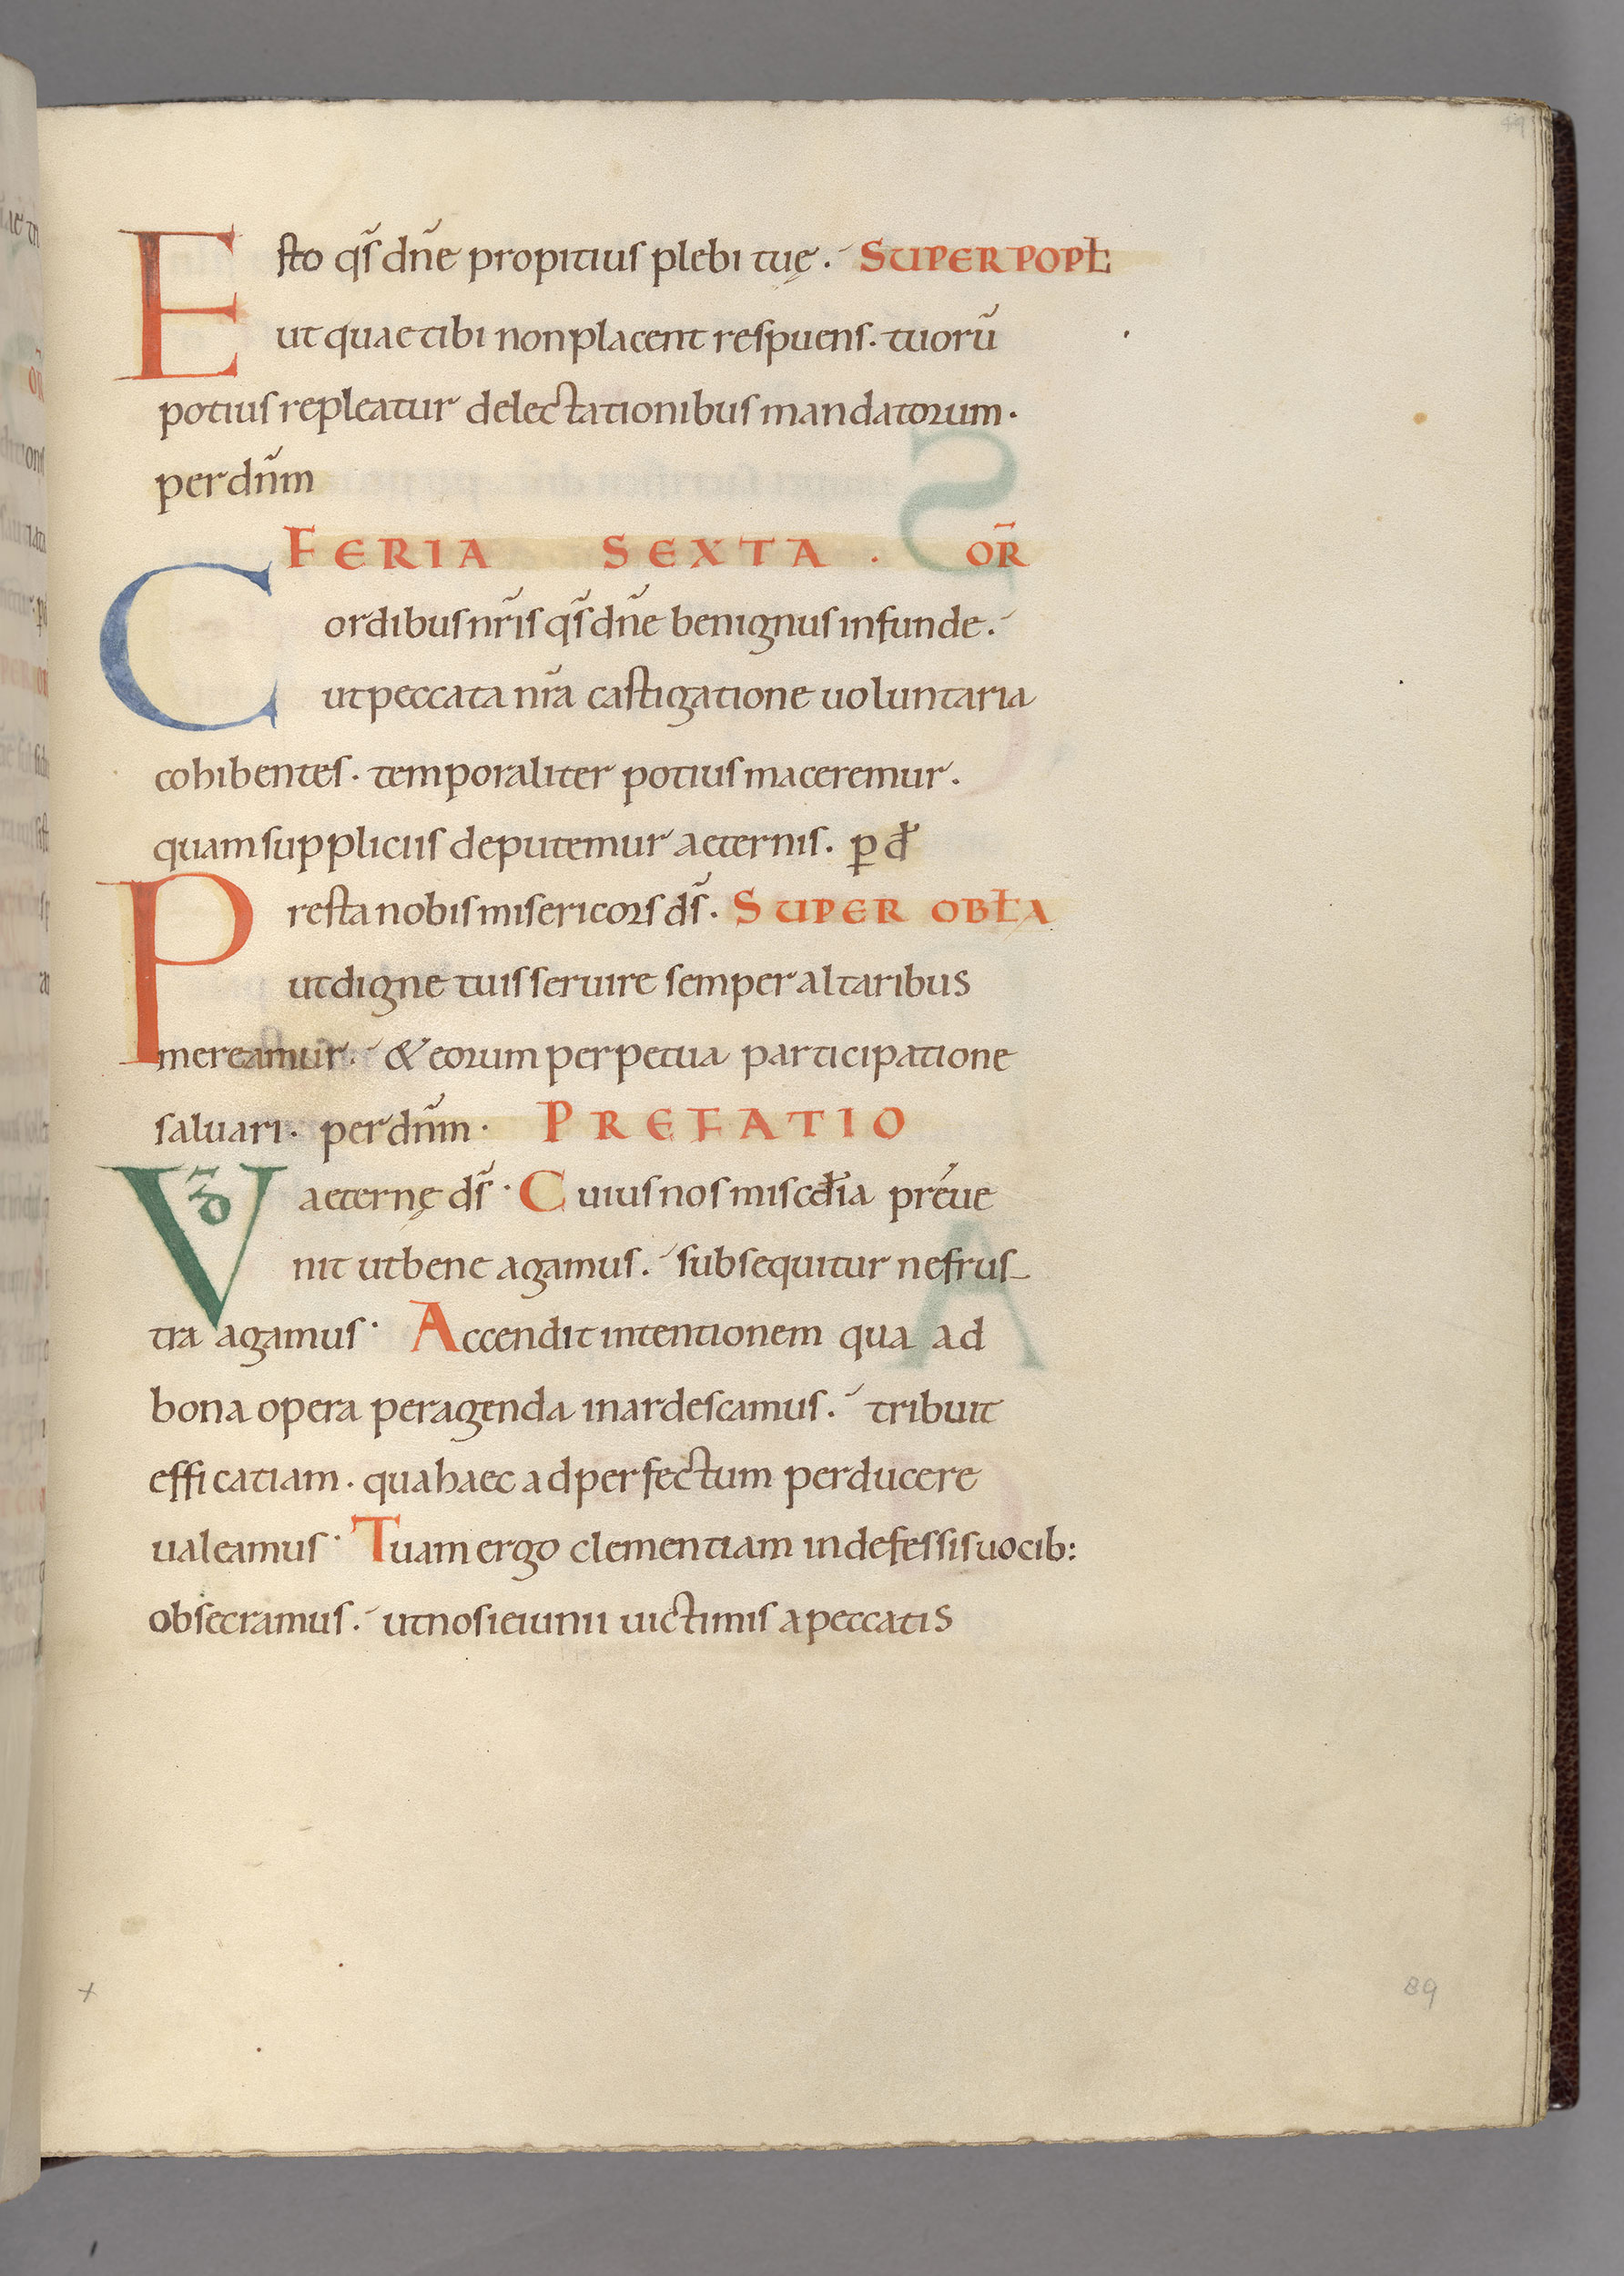 49
Esto qs̃ dñe propitius plebi tuę. SUPER POPŁ
ut quae tibi non placent respuens. tuorũ
potius repleatur delectationibus mandatorum.
per dñm
FERIA SEXTA . OR̃
Cordibus nr̃is qs̃ dñe benignus infunde.
ut peccata nr̃a castigatione uoluntaria
cohibentes. temporaliter potius maceremur.
quam suppliciis deputemur aeternis. ꝑ đ
Presta nobis misericors ds̃. SUPER OBŁA
ut digne tuis seruire semper altaribus
mereamur. & eorum perpetua participatione
saluari. per dñm. PREFATIO
VD̃ aeternę ds̃. Cuius nos misc̄đia préue
nit ut bene agamus. subsequitur ne frus-
tra agamus. Accendit intentionem qua ad
bona opera peragenda inardescamus. tribuit
efficatiam. qua haec ad perfectum perducere
ualeamus. Tuam ergo clementiam indefessis uocib:
obsecramus. ut nos ieiunii uictimis a peccatis
+ 89